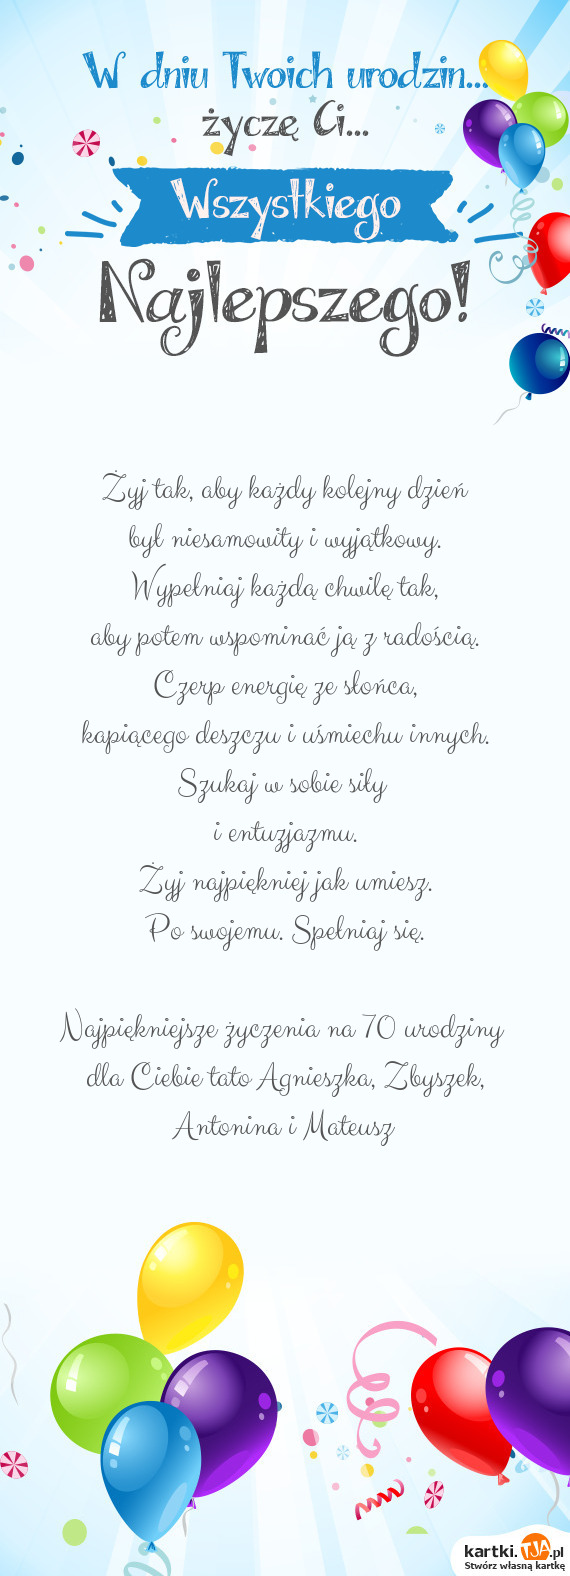 W dniu Twoich urodzin...
życzę Ci...
Wszystkiego
Najlepszego!
Żyj tak, aby każdy kolejny dzień
był niesamowity i wyjątkowy.
Wypełniaj każdą chwilę tak,
aby potem wspominać ją z radością.
Czerp energię ze słońca,
kapiącego deszczu i uśmiechu innych.
Szukaj w sobie siły
i entuzjazmu.
Żyj najpiękniej jak umiesz.
Po swojemu. Spełniaj się.
Najpiękniejsze życzenia na 70 urodziny
dla Ciebie tato Agnieszka, Zbyszek,
Antonina i Mateusz
kartki.TJA.pl
Stwórz własną kartkę